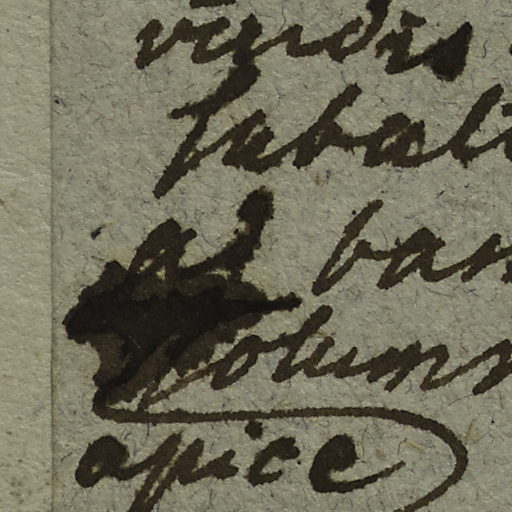 viridis
subalt
ad ban
Column
apice